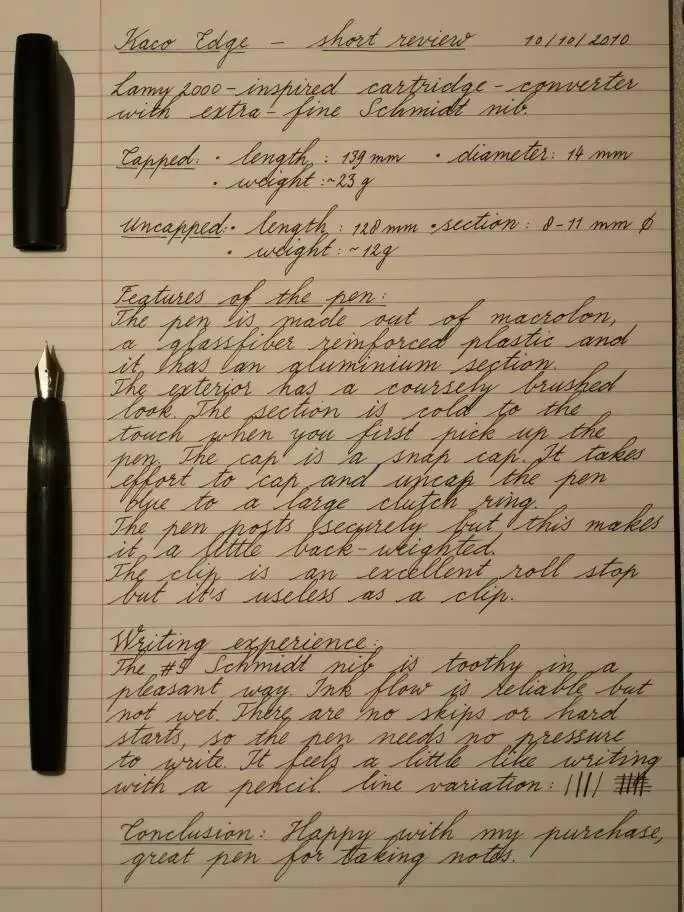 Kaco Edge - short review 10/10/2010
Lamy 2000-inspired cartridge-converter
with extra-fine Schmidt nib.
Capped: • length : 139 mm • diameter: 14 mm
• weight :~23 g
Uncapped:• length : 128 mm • section : 8-11 mm ϕ
• weight: ~12g
Features of the pen:
The pen is made out of macrolon,
a glassfiber reinforced plastic and
it has an aluminium section.
The exterior has a coursely brushed
look. The section is cold to the
touch when you first pick up the
pen. The cap is a snap cap. It takes
effort to cap and uncap the pen
due to a large clutch ring.
The pen posts securely but this makes
it a little back-weighted.
The clip is an excellent roll stop
but it's useless as a clip.
Writing experience:
The #5 Schmidt nib is toothy in a
pleasant way. Ink flow is reliable but
not wet. There are no skips or hard
starts, so the pen needs no pressure
to write. It feels a little like writing
with a pencil. line variation:
Conclusion: Happy with my purchase,
great pen for taking notes.